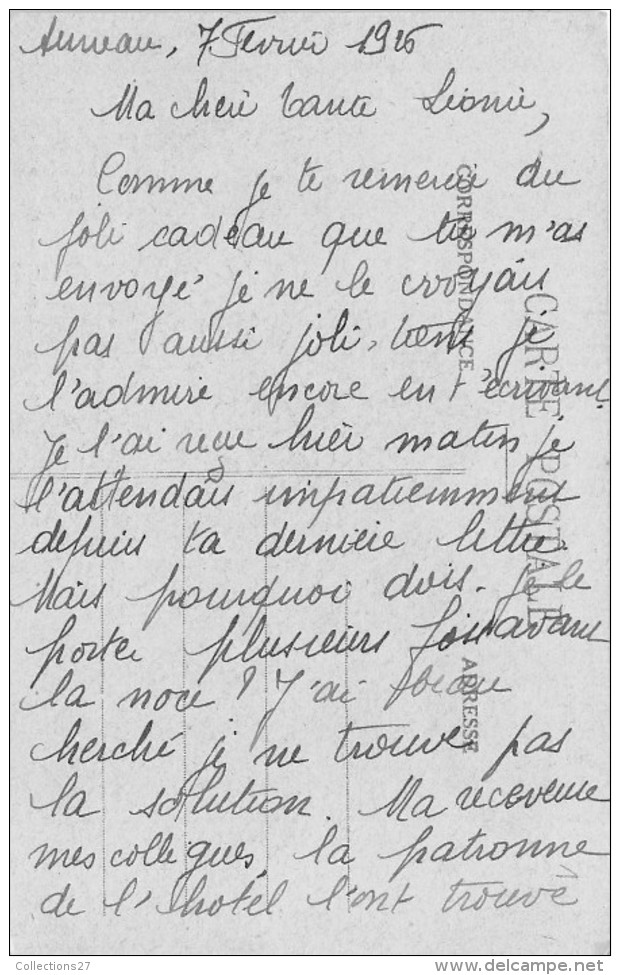 Auneau, 7 Février 1926
Ma cheri tante Léonie,
Comme je te remercie du
joli cadeau que tu m'as
envoyé je ne le croyais
pas aussi joli, tiens je
l'admire encore en t'écrivant.
Je l'ai reçu hier matin je
l'attendais impatiemment
depuis ta dernière lettre.
Mais pourquoi dois-je le
porter plusieurs fois avant
la noce ? J'ai beau
cherché je ne trouve pas
la solution. Ma receveuse
mes collègues, la patronne
de l'hotel l'ont trouvé
CARTE POSTALE
CORRESPONDANCE
ADRESSE
Collections27
www.delcampe.net